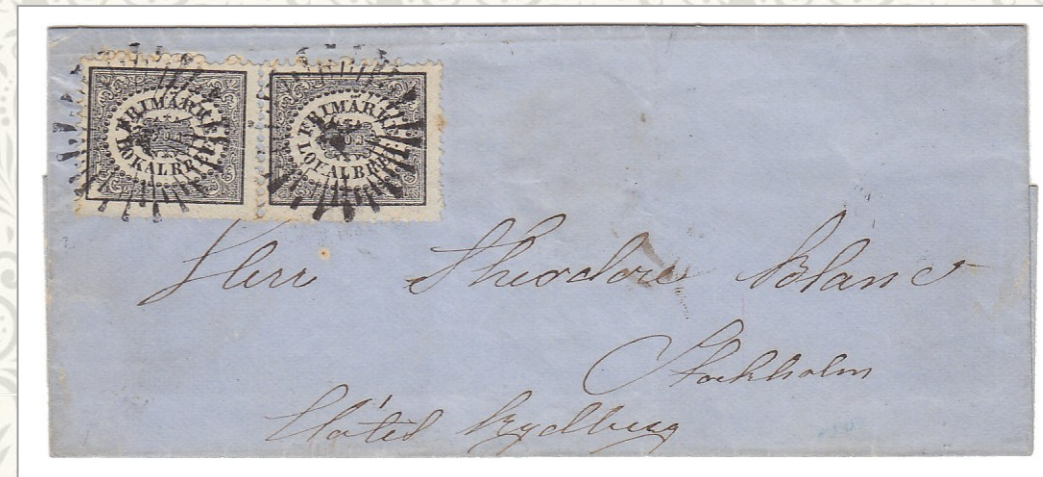 FRIMÄRKE
LOKALBREF
FRIMÄRKE
LOKALBREF
Herr Theodore Blanc
Stockholm
Hôtel Rydberg